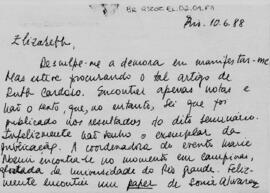 BR RJCOC EL.02.01.P1
Rio. 10.6.88
Elizabeth,
Desculpe-me a demora em manifestar-me.
Mas estive procurando o tal artigo de
Ruth Cardoso. Encontrei apenas notas e
não o texto, que, no entanto, sei que foi
publicado nos resultados do dito seminário.
Infelizmente não tenho o exemplar da
publicação. A coordenadora do evento Marie
encontra-se no momento em campinas,
da universidade do Rio Grande. Feliz-
mente encontrei um paper de Sonia Alvarez